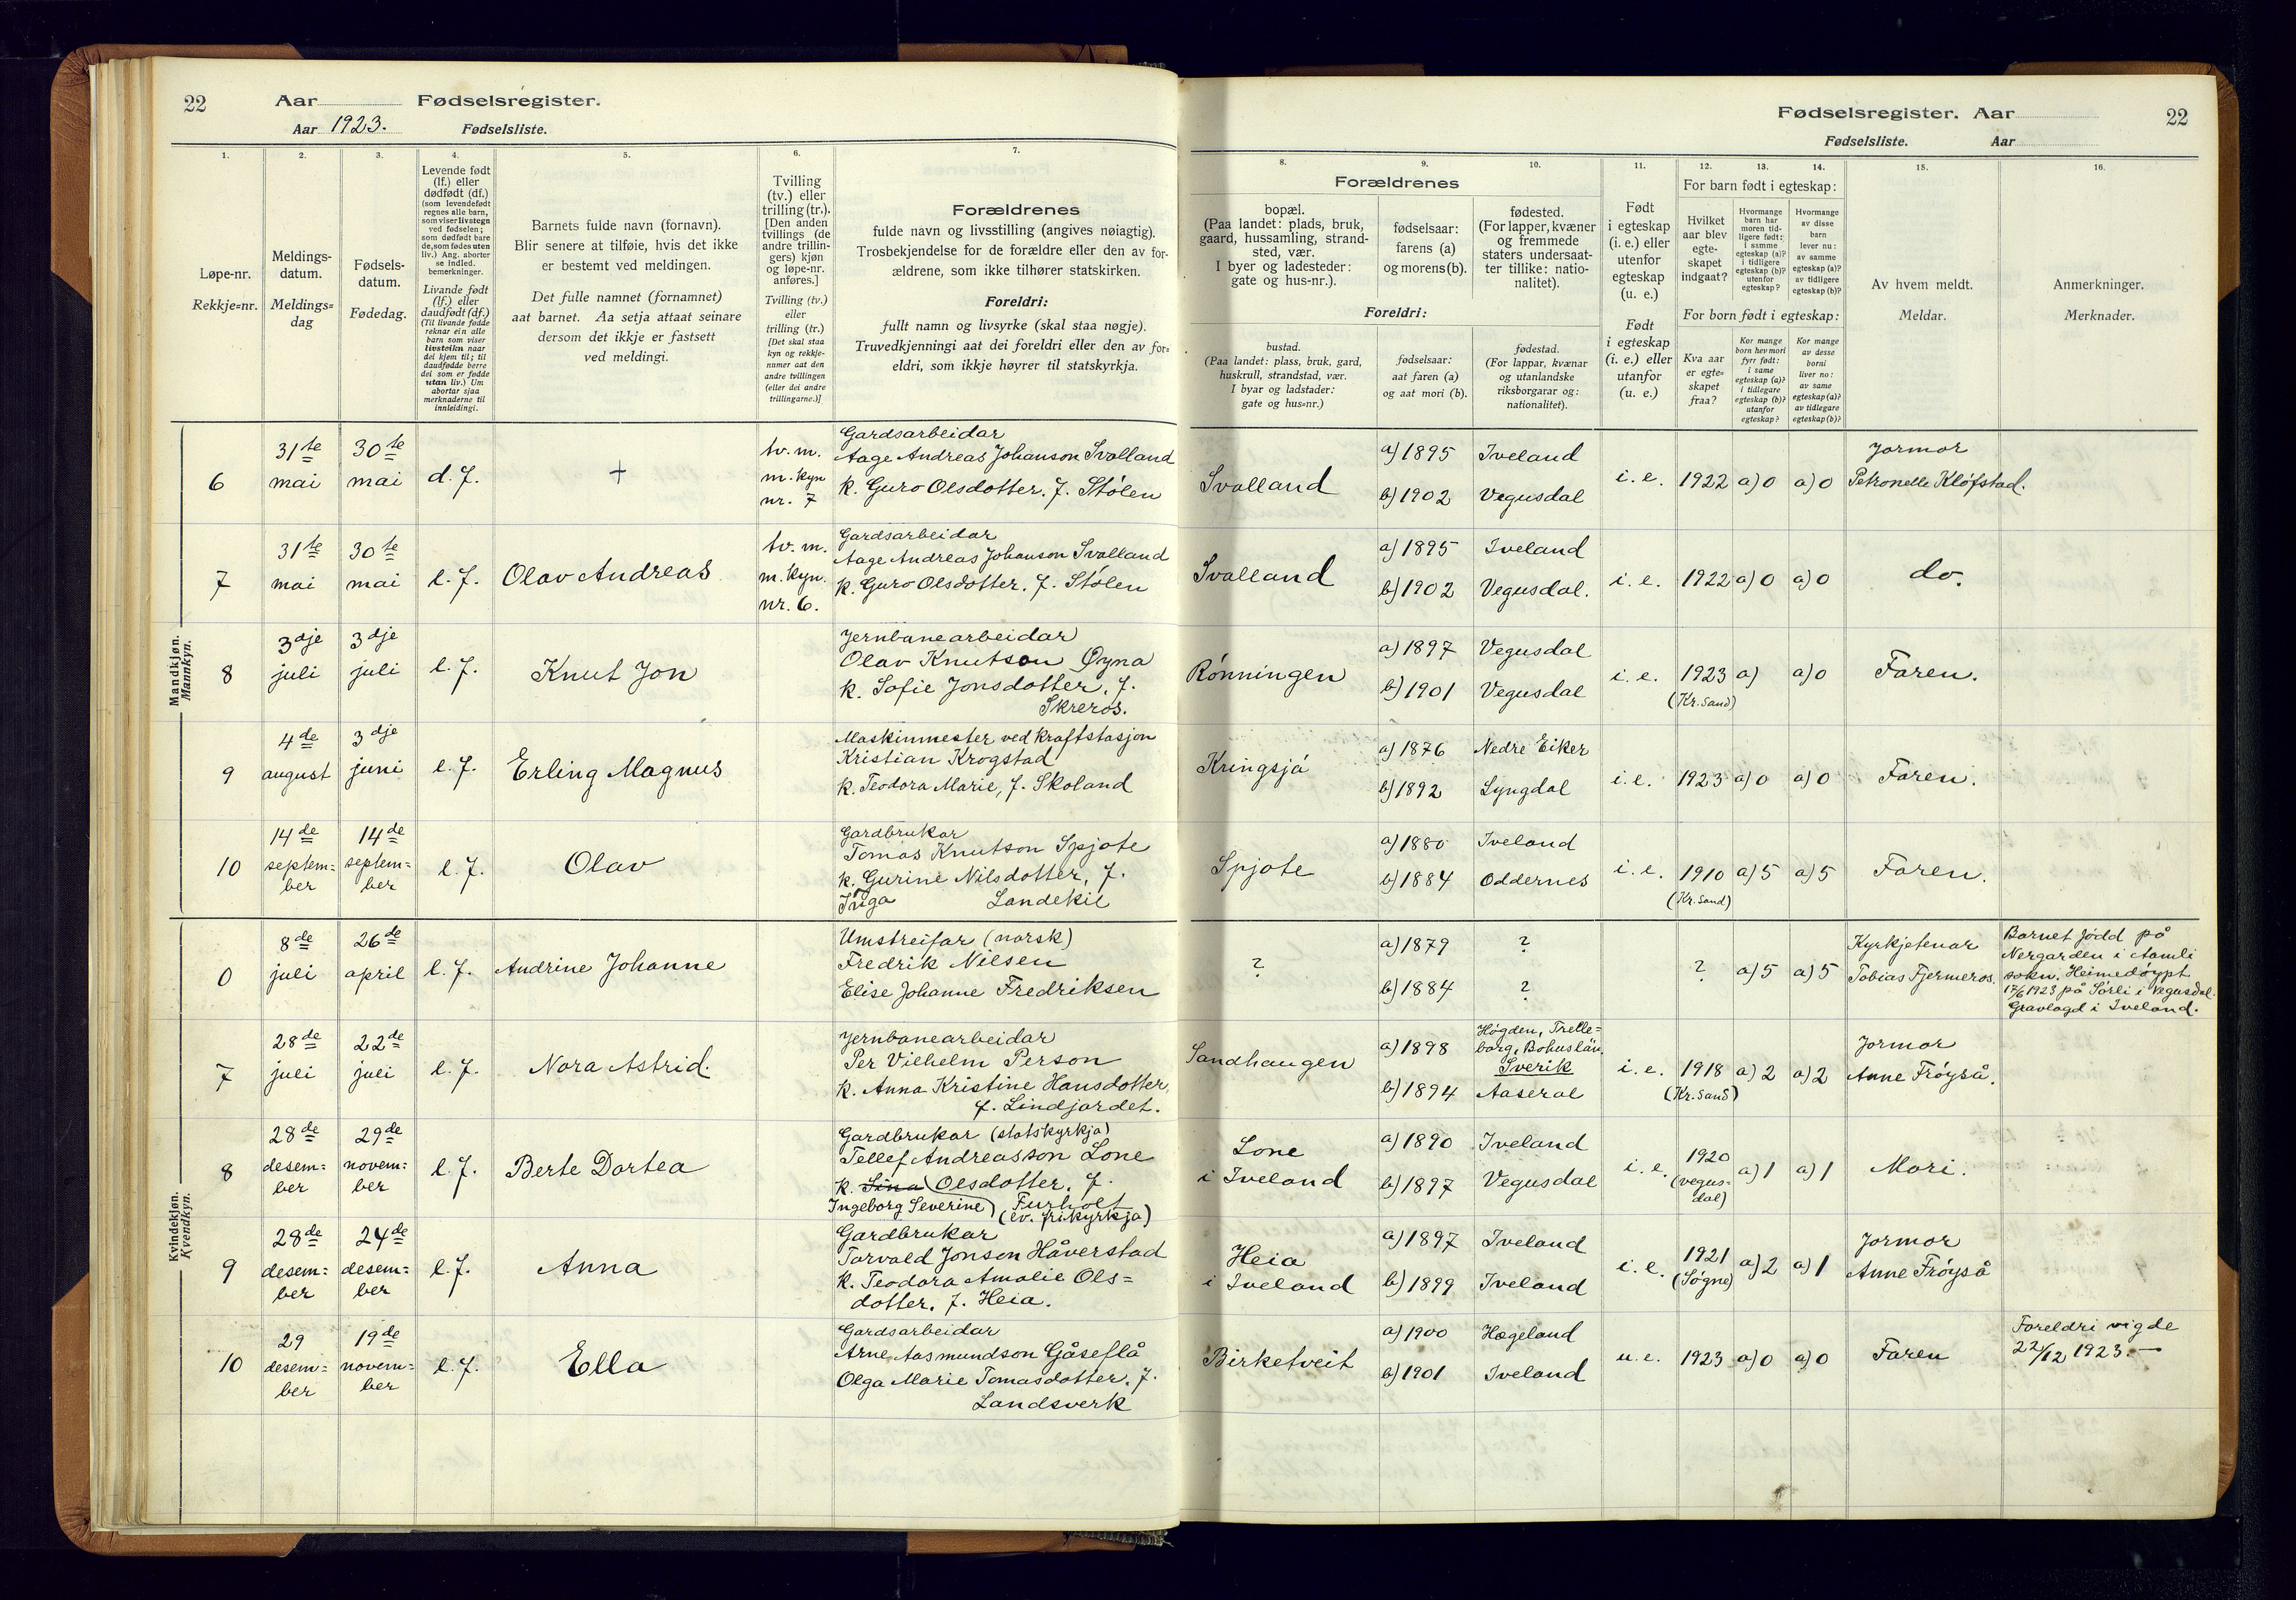 22 Aar Fødselsregister.
Aar 1923. Fødselsliste.
Fødselsregister. Aar 22
Fødselsliste. Aar
1. 2. 3. 4. 5. 6. 7.
Løpe-nr.
Rekkje=nr.
Meldings-
datum.
Meldings=
dag
Fødsels-
datum.
Fødedag.
Levende født
(lf.) eller
dødfødt (df.)
(som levendefødt
regnes alle barn,
som viser livstegn
ved fødselen;
som dødfødt bare
de, som fødes uten
liv.) Ang. aborter
se indled.
bemerkninger.
Livande født
(lf.) eller
daudfødt (df.)
(Til livande fødde
reknar ein alle
barn som viser
livsteikn naar
dei kjem til; til
daudfødde berre
dei som er fødde
utan liv.) Um
abortar sjaa
merknaderne til
innleidingi.
Barnets fulde navn (fornavn).
Blir senere at tilføie, hvis det ikke
er bestemt ved meldingen.
Det fulle namnet (fornamnet)
aat barnet. Aa setja attaat seinare
dersom det ikkje er fastsett
ved meldingi.
Tvilling
(tv.) eller
trilling (tr.).
[Den anden
tvillings (de
andre trillin-
gers) kjøn
og løpe-nr.
anføres.]
Tvilling (tv.)
eller
trilling (tr.)
[Det skal staa
kyn og rekkje-
numer aat den
andre tvillingen
(eller dei andre
trillingarne.)]
Forældrenes
fulde navn og livsstilling (angives nøiagtig).
Trosbekjendelse for de forældre eller den av for-
ældrene, som ikke tilhører statskirken.
Foreldri:
fullt namn og livsyrke (skal staa nøgje).
Truvedkjenningi aat dei foreldri eller den av for=
eldri, som ikkje høyrer til statskyrkja.
8. 9. 10. 11. 12. 13. 14. 15. 16.
Forældrenes
bopæl.
(Paa landet: plads, bruk,
gaard, hussamling, strand-
sted, vær.
I byer og ladesteder:
gate og hus-nr.).
fødselsaar:
farens (a)
og morens (b).
fødested.
(For lapper, kvæner
og fremmede
staters undersaat-
ter tillike: natio-
nalitet).
Foreldri:
bustad.
(Paa landet: plass, bruk, gard,
huskrull, strandstad, vær.
I byar og ladstader:
gate og hus=nr.)
fødselsaar:
aat faren (a)
og aat mori (b).
fødestad.
(For lappar, kvænar
og utanlandske
riksborgarar og:
nationalitet).
Født
i egteskap
(i. e.) eller
utenfor
egteskap
(u. e.)
Født
i egteskap
(i. e.) eller
utanfor
(u. e.)
For barn født i egteskap:
Hvilket
aar blev
egte-
skapet
indgaat?
Hvormange
barn har
moren tid-
ligere født:
i samme
egteskap (a)?
i tidligere
egteskap (b)?
utenfor
egteskap?
Hvormange
av disse
barn
lever nu:
av samme
egteskap (a)?
av tidligere
egteskap (b)?
For born født i egteskap:
Kva aar
er egte=
skapet
fraa?
Kor mange
born hev mori
fyrr født:
i same
egteskap (a)?
i tidlegare
egteskap (b)?
utanfor
egteskap?
Kor mange
av desse
borni
liver no:
av same
egteskap (a)?
av tidlegare
egteskap (b)?
Av hvem meldt.
Meldar.
Anmerkninger.
Merknader.
Mandkjøn.
Mannkyn.
6 31te mai 30te mai d.f. + tv. m. m. kyn nr. 7
Gardsarbeidar
Aage Andreas Johanson Svalland
k. Guro Olsdotter. f. Stólen
Svalland a) 1895 Iveland b) 1902 Vegusdal i. e. 1922 a) 0 a) 0 Jormor Petronelle Kløfstad.
7 31te mai 30te mai l.f. Olav Andreas tv. m. m. kyn. nr. 6.
Gardsarbeidar
Aage Andreas Johanson Svalland
k. Guro Olsdotter. f. Stólen
Svalland a) 1895 Iveland b) 1902 Vegusdal. i. e. 1922 a) 0 a) 0 do.
8 3dje juli 3dje juli l.f. Knut Jon
Jernbanearbeidar
Olav Knutson Øyna
k. Sofie Jonsdotter, f.
Skreros.
Rónningen a) 1897 Vegusdal b) 1901 Vegusdal i. e. 1923 (Kr. sand) a) a) 0 Faren.
9 4de august 3dje juni l.f. Erling Magnus
Maskinmester ved kraftstasjon
Kristian Krogstad
k. Teodora Marie, f. Skoland
Kringsjá a) 1876 Nedre Eiker b) 1892 Lyngdal i. e. 1923 a) 0 a) 0 Faren.
10 14de septem=ber 14de septem=ber l.f. Olav
Gardbrukar
Tomas Knutson Spjote
k. Gurine Nilsdotter, f.
Inga Landekil
Spjote a) 1880 Iveland b) 1884 Oddernes i. e. 1910 (Kr. sand) a) 5 a) 5 Faren.
Kvindekjøn.
Kvendkyn.
0 8de juli 26de april l.f. Andrine Johanne
Umstreifar (norsk)
Fredrik Nilsen
Elise Johanne Fredriksen
? a) 1879 ? b) 1884 ? ? a) 5 a) 5 Kyrkjetenar Tobias Fjermeros.
Barnet född på
Nergarden i Aamli
sokn. Heimedøypt
17/6 1923 på Sørli i Vegusdal.
Gravlagd i Iveland.
7 28de juli 22de juli l.f. Nora Astrid.
Jernbanearbeidar
Per Vilhelm Person
k. Anna Kristine Hansdotter,
f. Lindjordet.
Sandhaugen a) 1898 Högden, Trelle=borg, Bohuslän. Sverik b) 1894 Aaseral i. e. 1918 (Kr. sand) a) 2 a) 2 Jormor Anne Frøyså.
8 28de desem=ber 29de novem=ber l.f. Berte Dortea
Gardbrukar (statskyrkja)
Tellef Andreasson Lone
k. Sina Olsdotter, f.
Ingeborg Severine) Furholt
(ev. frikyrkja)
Lone i Iveland a) 1890 Iveland b) 1897 Vegusdal i. e. 1920 (vegus=dal) a) 1 a) 1 Mori.
9 28de desem=ber 24de desem=ber l.f. Anna
Gardbrukar
Torvald Jonson Håverstad
k. Teodora Amalie Ols=
dotter. f. Heia.
Heia i Iveland a) 1897 Iveland b) 1899 Iveland i. e. 1921 (Søgne) a) 2 a) 1 Jormor Anne Frøyså
10 29 desem=ber 19de novem=ber l.f. Ella
Gardsarbeidar
Arne Aasmundson Gåseflå
Olga Marie Tomasdotter. f.
Landsverk
Birketveit a) 1900 Hægeland b) 1901 Iveland u. e. 1923 a) 0 a) 0 Faren
Foreldri vigde
22/12 1923.—